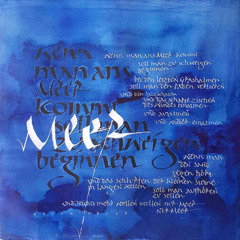 wenn
man ans
Meer
kommt
soll man
schweigen
beginnen
Meer
wenn man ans Meer kommt
soll man zu schweigen
beginnen
bei den letzten Grashalmen
soll man den Faden verlieren
und den Salzschaum
und das scharfe Zischen
des Windes einatmen
und ausatmen
und wieder einatmen
wenn man
den Sand
sägen hört
und das Schlurfen der kleinen Steine
in langen Wellen
soll man aufhören
zu sollen
und nichts mehr wollen wollen nur Meer
Nur Meer